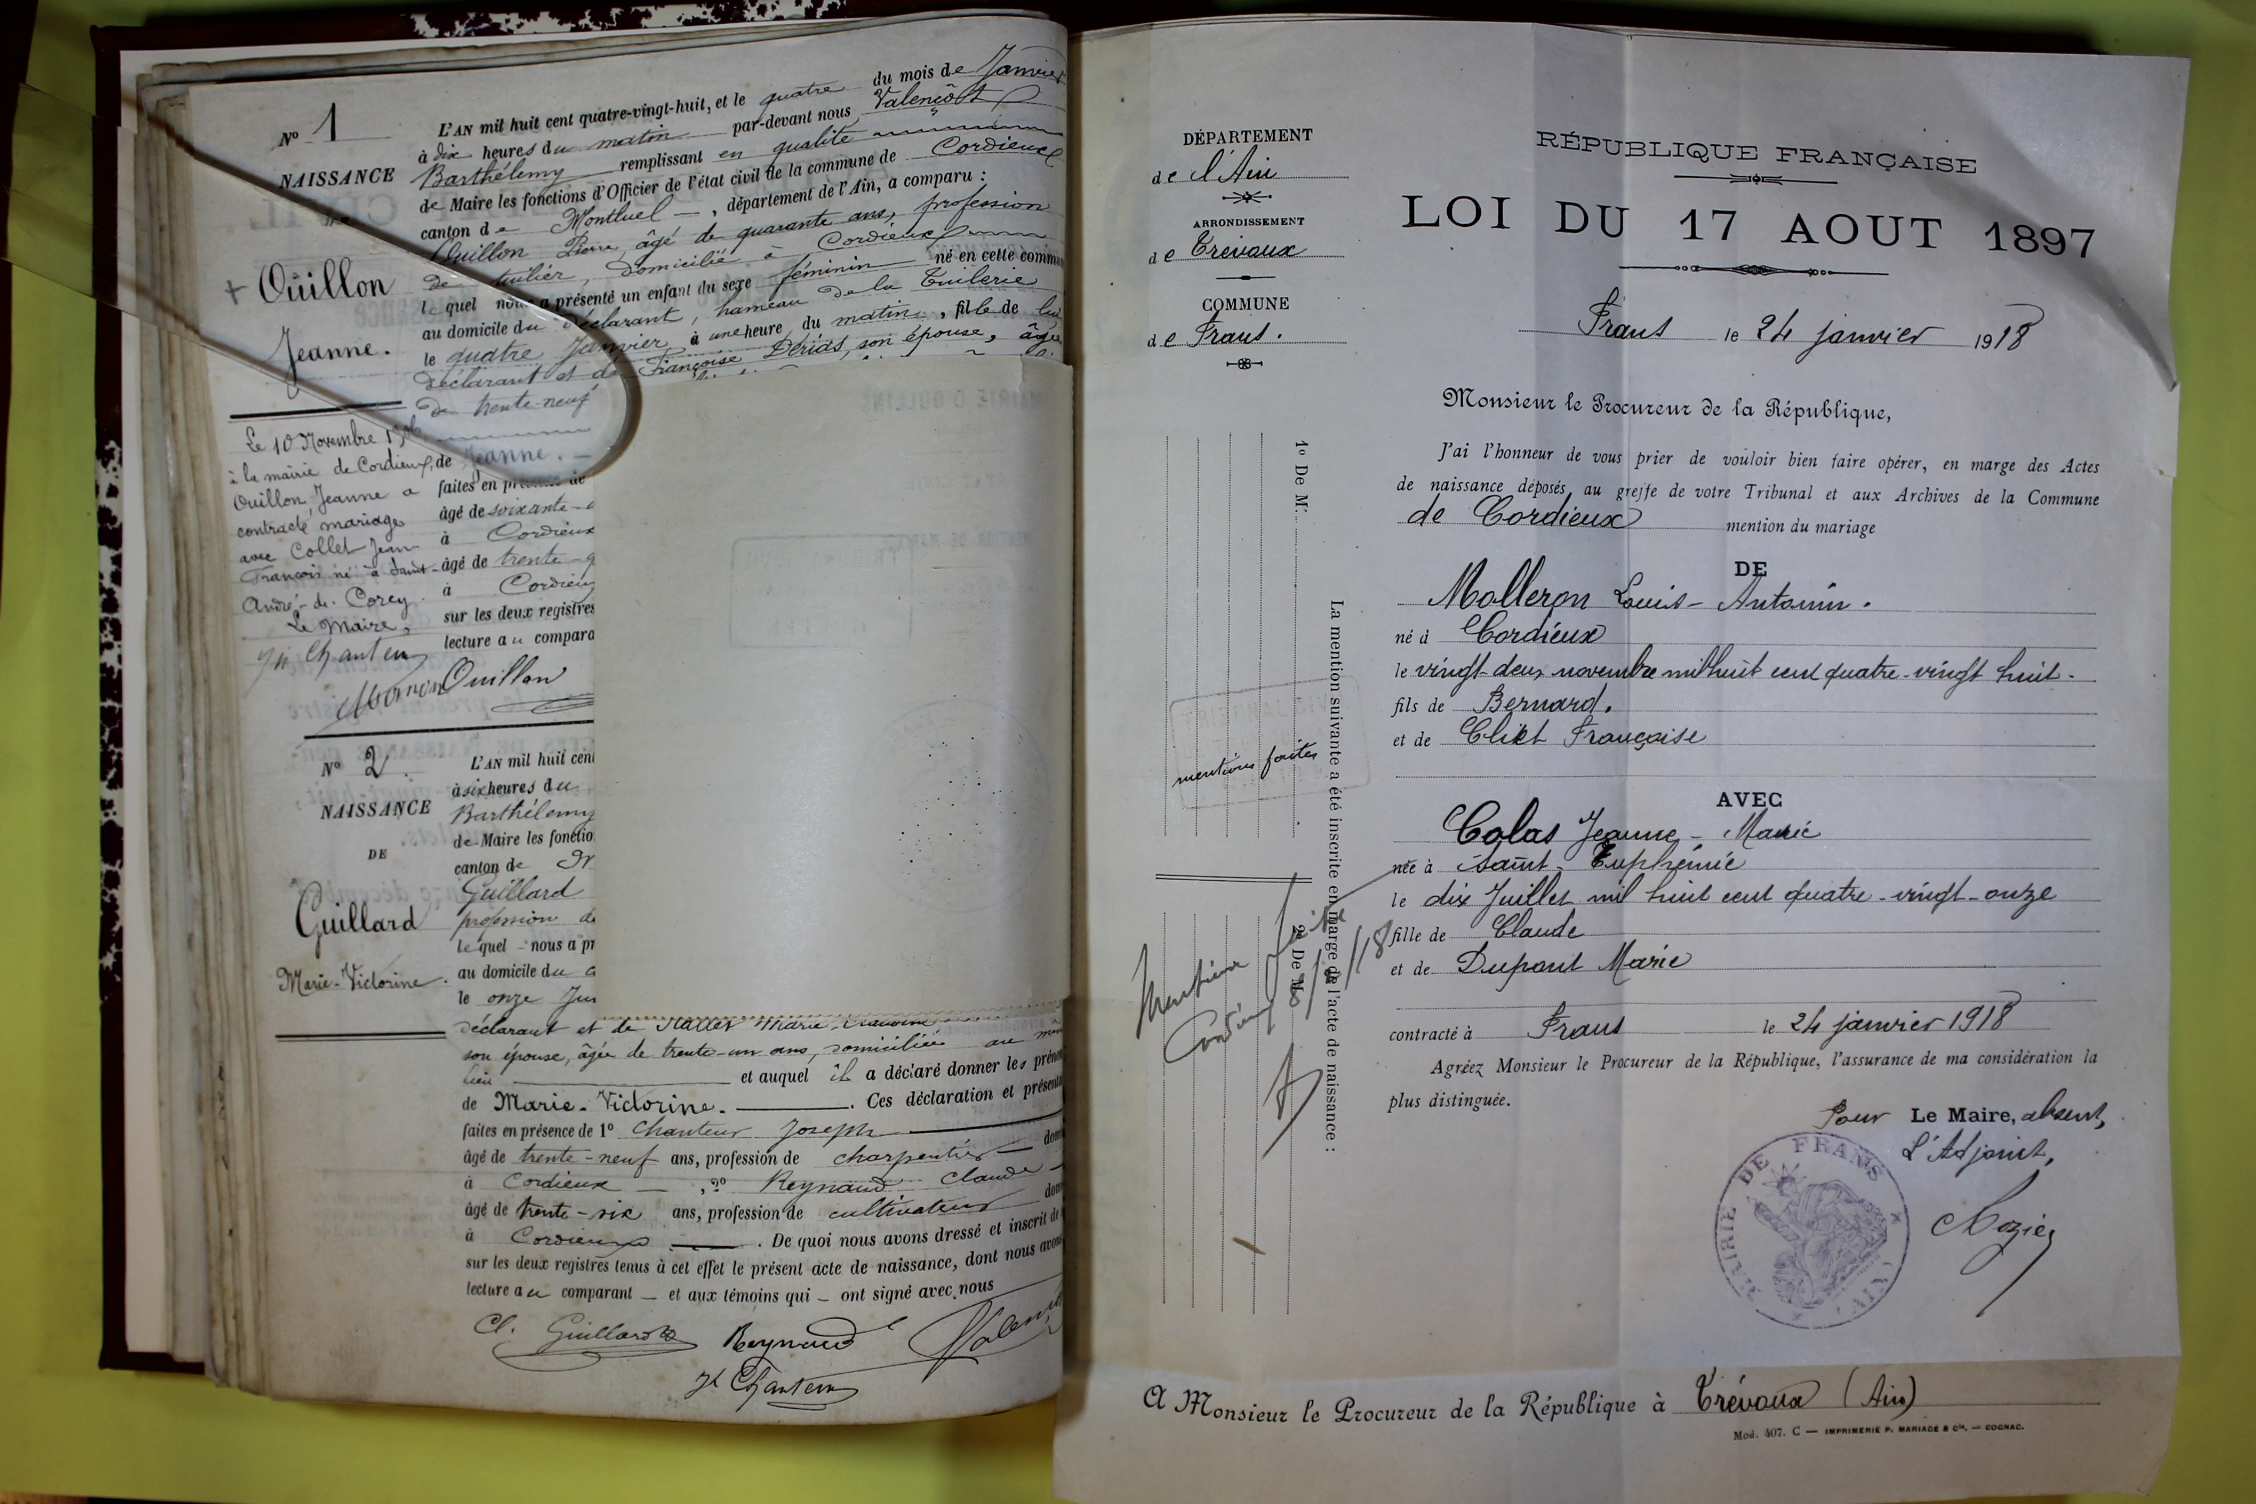 No 1
NAISSANCE
DE
+ Ouillon
Jeanne.
L'AN mil huit cent quatre-vingt-huit, et le quatre du mois de Janvier
à dix heures du matin par-devant nous Valençot
Barthélemy remplissant en qualité
de Maire les fonctions d'Officier de l'état civil de la commune de Cordieux
canton de Montluel, département de l'Ain, a comparu :
Ouillon Pierre, âgé de quarante ans, profession
de tuilier, domicilié à Cordieux
lequel nous a présenté un enfant du sexe féminin né en cette commu
au domicile du déclarant, hameau de la Tuilerie
le quatre Janvier à une heure du matin, fille de lui
déclarant et de Françoise Dérias, son épouse, âgée
de trente-neuf
de Jeanne. —
faites en présence de
âgé de soixante-
à Cordieux
âgé de trente-q
à Cordieu
sur les deux registres
lecture au compara
Ouillon
Le 10 Novembre 1906
à la mairie de Cordieux,
Ouillon Jeanne a
contracté mariage
avec Collet Jean
François né à Saint-
André-de-Corcy.
Le Maire,
Jh Chanteur
No 2
NAISSANCE
DE
Guillard
Marie-Victorine.
L'AN mil huit cent
à six heures du
Barthélemy
de Maire les fonctio
canton de M
Guillard
profession de
lequel nous a pr
au domicile du d
le onze Jan
déclarant et de Marie
son épouse, âgée de trente-un ans, domiciliée au mê
lieu et auquel il a déclaré donner les préno
de Marie-Victorine. Ces déclaration et présenta
faites en présence de 1o Chanteur Joseph
âgé de trente-neuf ans, profession de charpentier dom
à Cordieux, 2o Reynaud Claude
âgé de trente-six ans, profession de cultivateur dom
à Cordieux. De quoi nous avons dressé et inscrit de
sur les deux registres tenus à cet effet le présent acte de naissance, dont nous avons
lecture au comparant et aux témoins qui ont signé avec nous
Cl. Guillard Reynaud Valenço
Jh Chanteur
DÉPARTEMENT
de l'Ain
ARRONDISSEMENT
de Trévoux
COMMUNE
de Frans.
RÉPUBLIQUE FRANÇAISE
LOI DU 17 AOUT 1897
Frans le 24 janvier 1918
Monsieur le Procureur de la République,
J'ai l'honneur de vous prier de vouloir bien faire opérer, en marge des Actes
de naissance déposés au greffe de votre Tribunal et aux Archives de la Commune
de Cordieux mention du mariage
DE
Molleron Louis-Antonin.
né à Cordieux
le vingt-deux novembre mil huit cent quatre-vingt huit.
fils de Bernard.
et de Clikt Françoise
AVEC
Colas Jeanne-Marie
née à Saint-Euphémie
le dix Juillet mil huit cent quatre-vingt-onze
fille de Claude
et de Dupont Marie
contracté à Frans le 24 janvier 1918
Agréez Monsieur le Procureur de la République, l'assurance de ma considération la
plus distinguée.
Pour Le Maire, absent,
L'Adjoint,
MAIRIE DE FRANS (AIN)
1o De M.
La mention suivante a été inscrite en marge de l'acte de naissance :
2o De M.
mentions faites
Mention faite
Cordieux /18
A Monsieur le Procureur de la République à Trévoux (Ain)
Mod. 407. C — IMPRIMERIE P. MARIAGE & Cie, — COGNAC.